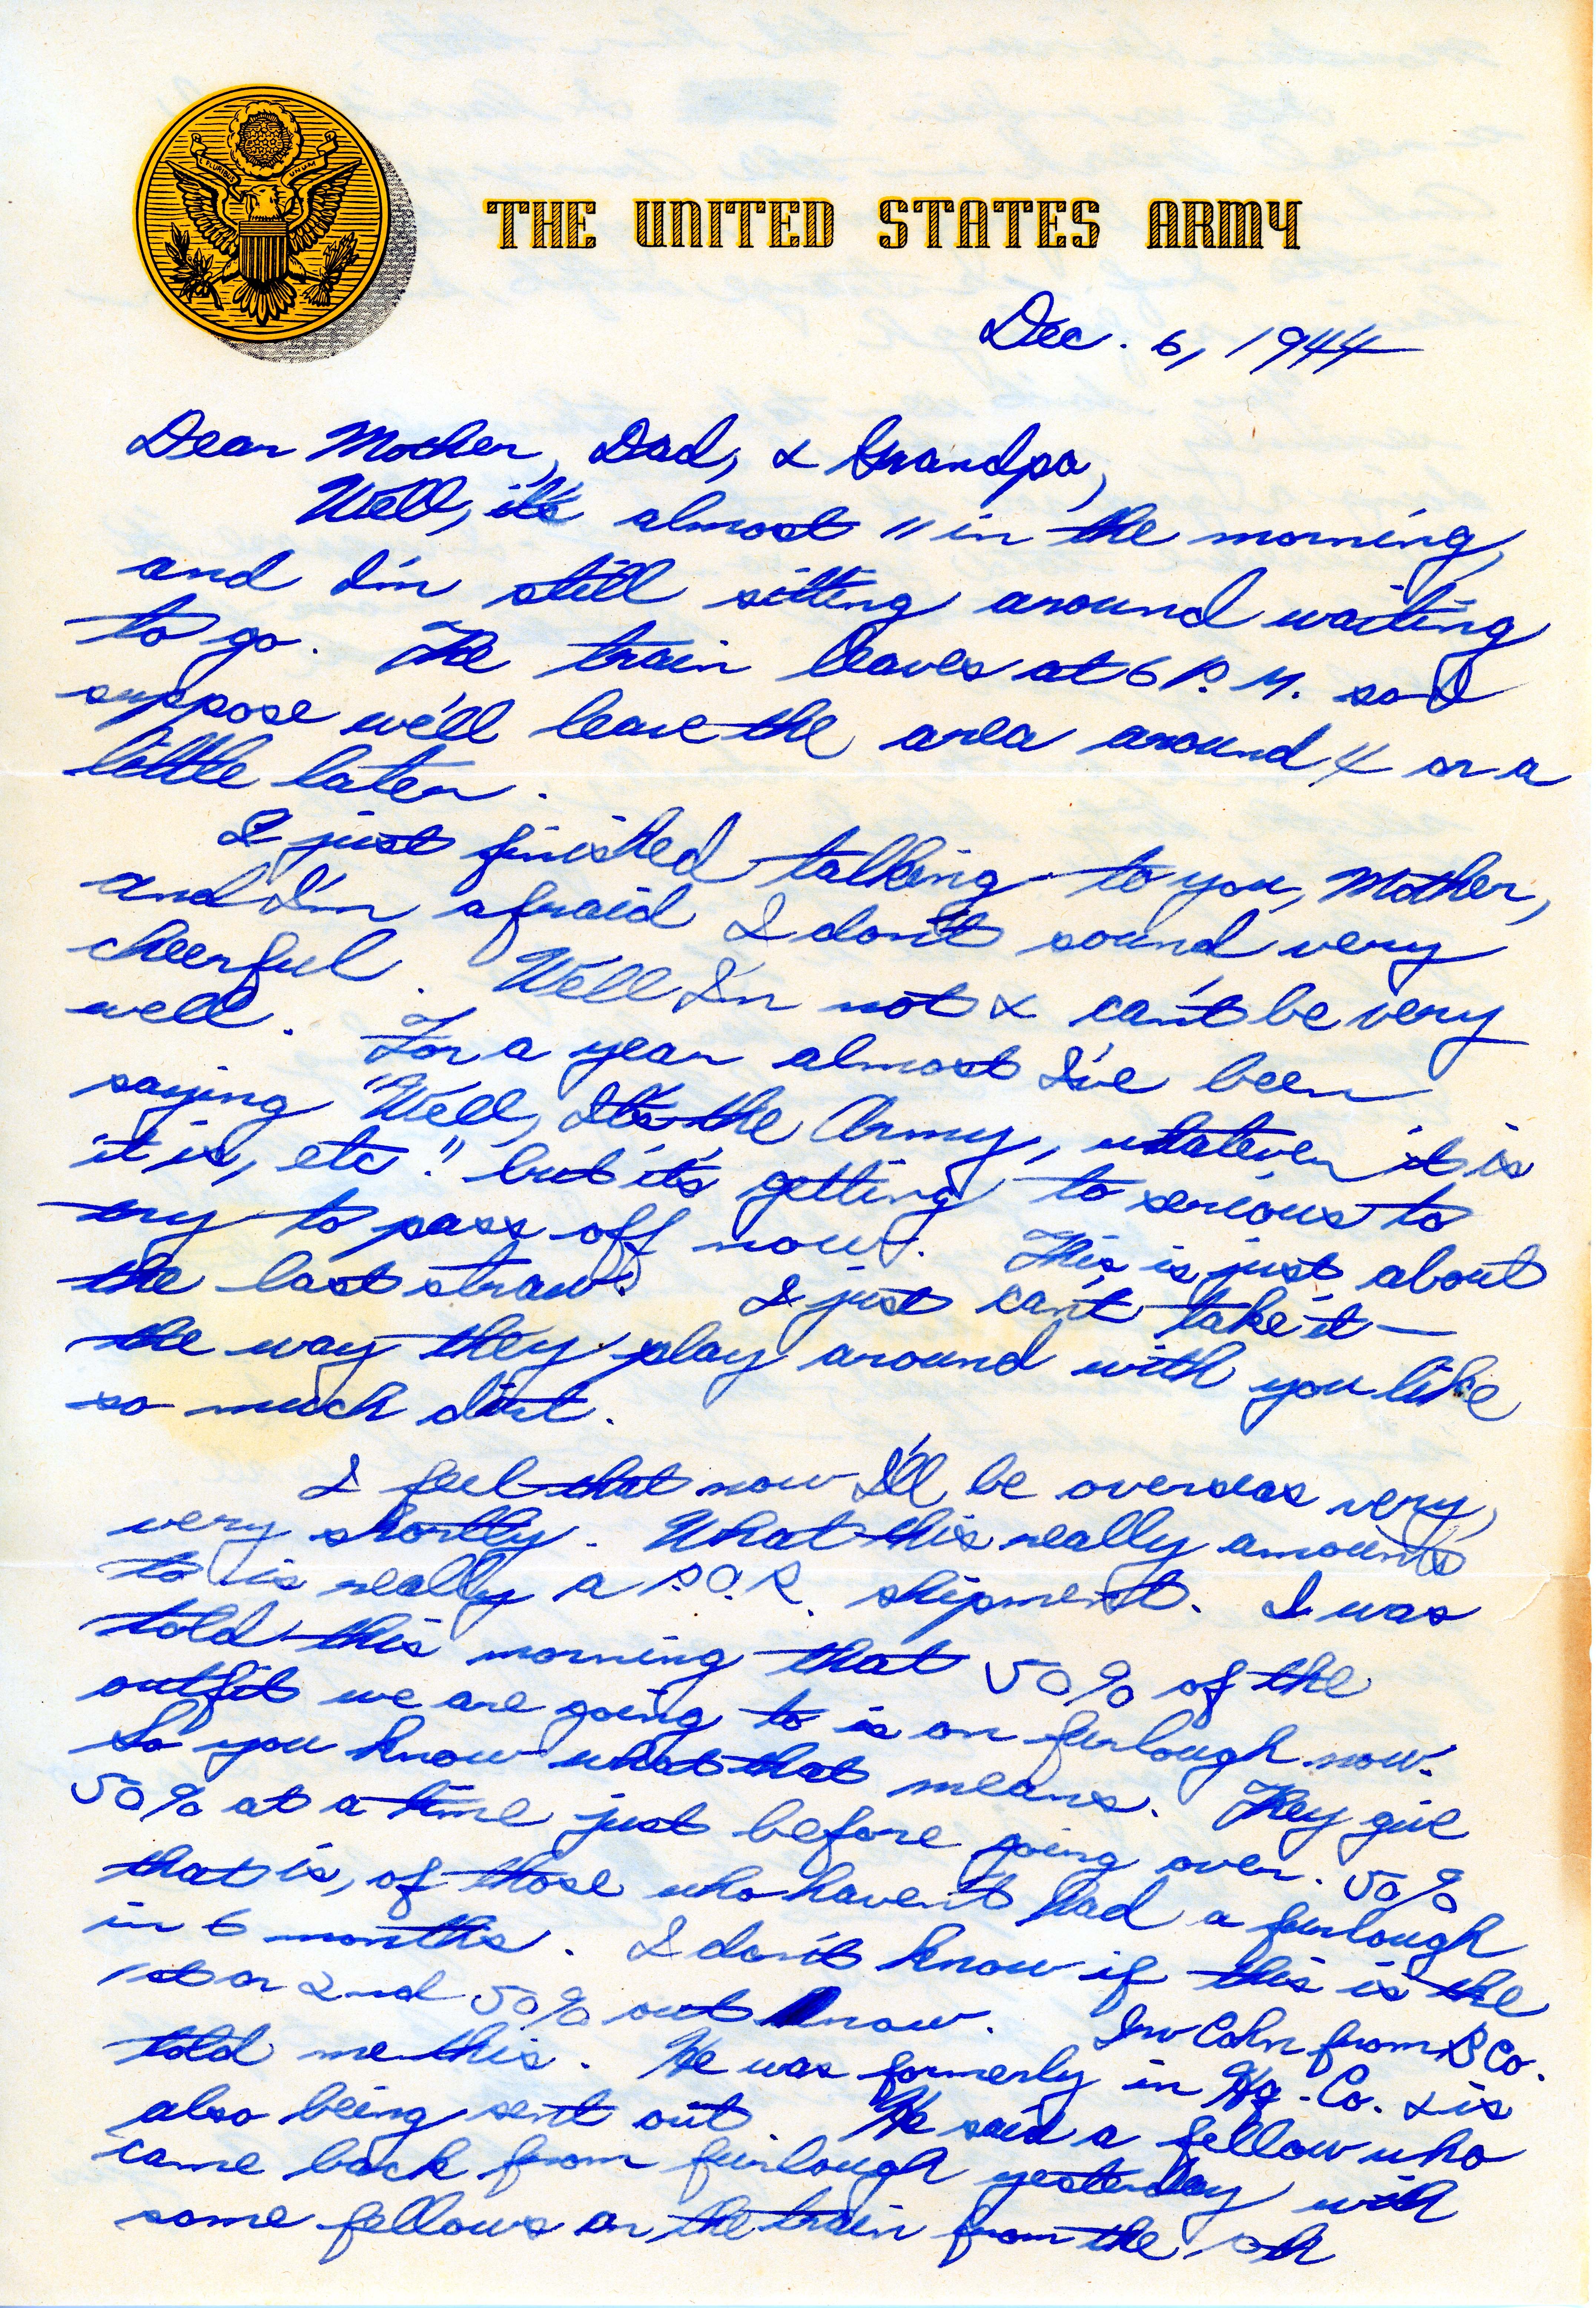 PLURIBUS UNUM
THE UNITED STATES ARMY
Dec. 6, 1944
Dear Mother, Dad, & Grandpa,
Well, it's almost 11 in the morning,
and I'm still sitting around waiting
to go. The train leaves at 6 P.M. so I
suppose we'll leave the area around 4 or a
little later.
I just finished talking to you, Mother,
and I'm afraid I don't sound very
cheerful. Well I'm not & can't be very
well. For a year almost I've been
saying "Well, It's the Army, whatever it is
it is, etc." but it's getting to serious to
try to pass off now. This is just about
the last straw. I just can't take it—
the way they play around with you like
so much dirt.
I feel that now I'll be overseas very,
very shortly. What this really amounts
to is really a P.O.R. shipment. I was
told this morning that 50% of the
outfit we are going to is on furlough now.
So you know what that means. They give
50% at a time just before going over. 50%
that is, of those who haven't had a furlough
in 6 months. I don't know if this is the
1st or 2nd 50% out now. Irv Cohn from B Co.
told me this. He was formerly in Hq. Co. & is
also being sent out. He said a fellow who
came back from furlough yesterday with
some fellows on the train from the